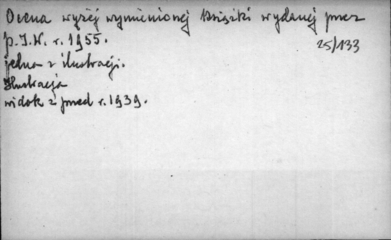 Ocena wyżej wymienionej książki wydanej przez
P.I.W. r. 1955.
25/133
jedna z ilustracji.
Ilustracja
widok z przed r. 1939.